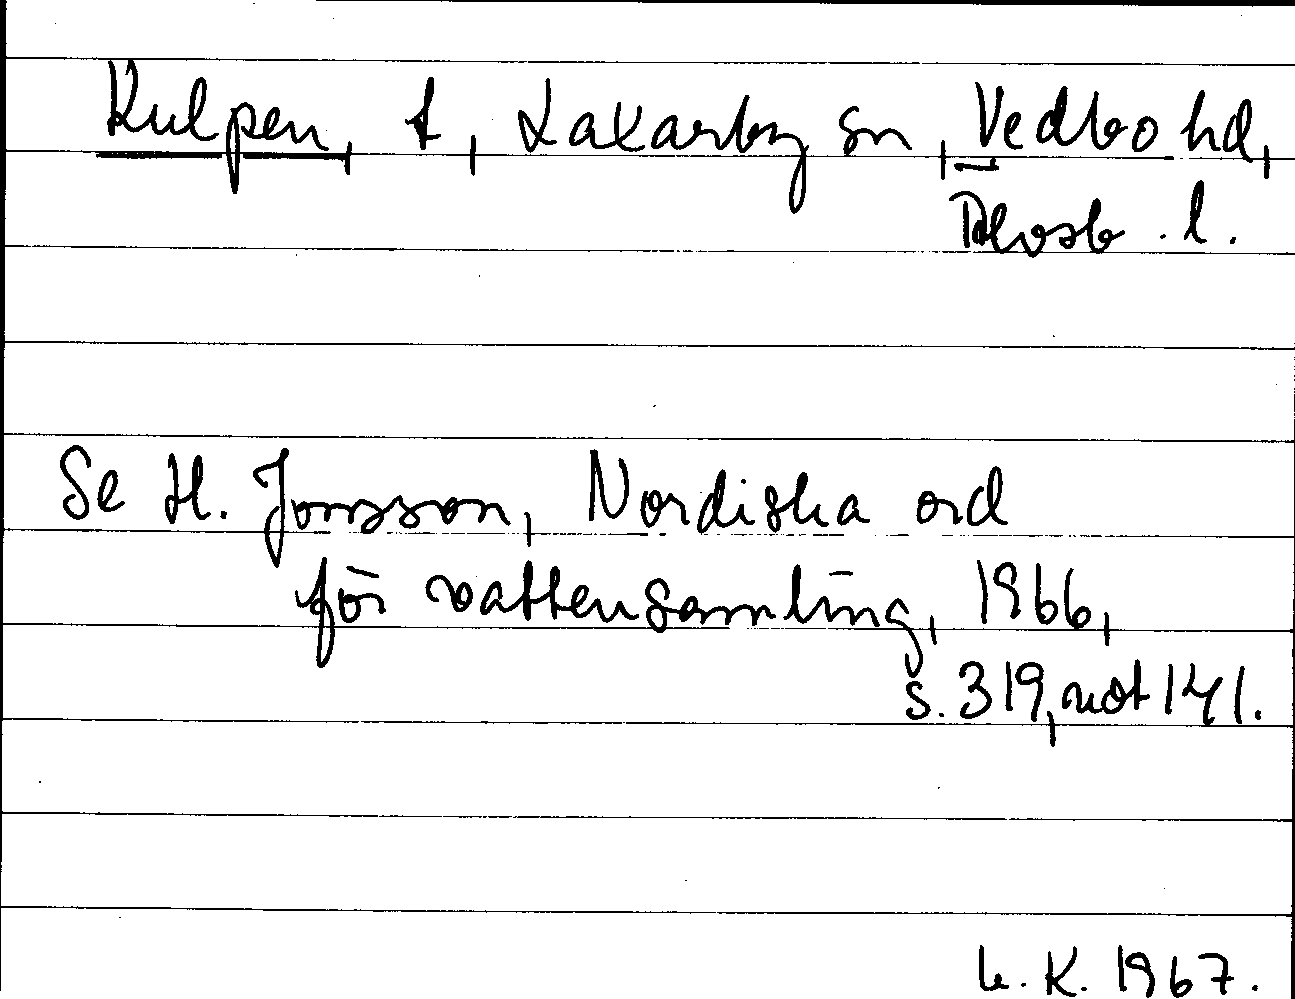 Kulpen, t, Laxarby sn, Vedbo hd,
Älvsb. l.
Se H. Jonsson, Nordiska ord
för vattensamling, 1966,
s. 319, not 141.
K. 1967.